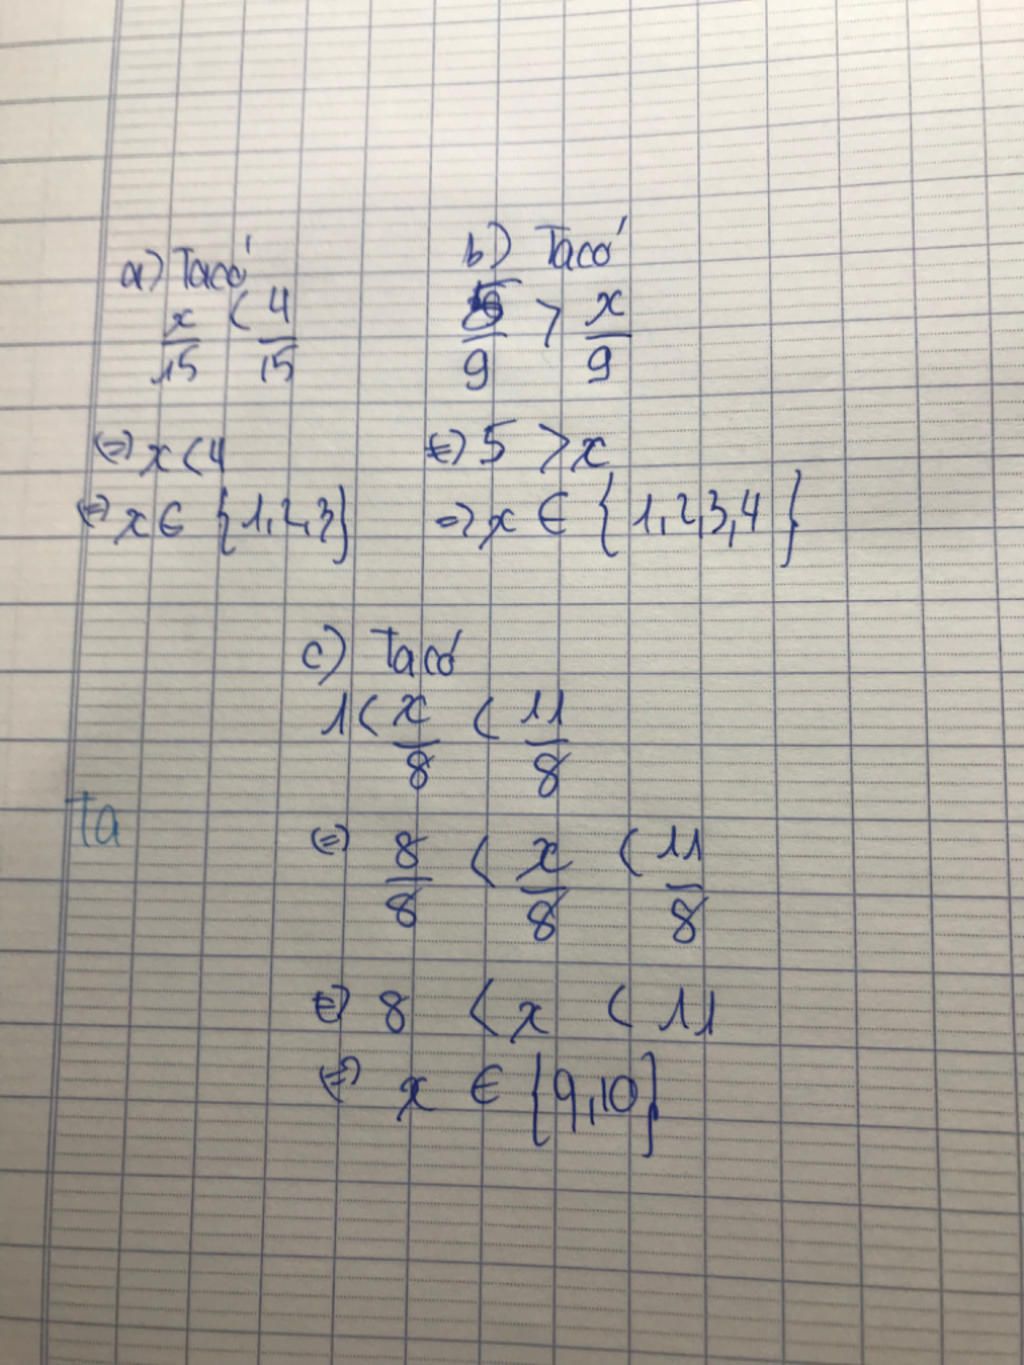 a) Ta có
x/15 < 4/15
<=> x < 4
<=> x ∈ {1,2,3}
b) Ta có
5/9 > x/9
<=> 5 > x
=> x ∈ {1,2,3,4}
c) Ta có
1 < x/8 < 11/8
Ta
<=> 8/8 < x/8 < 11/8
<=> 8 < x < 11
<=> x ∈ {9,10}